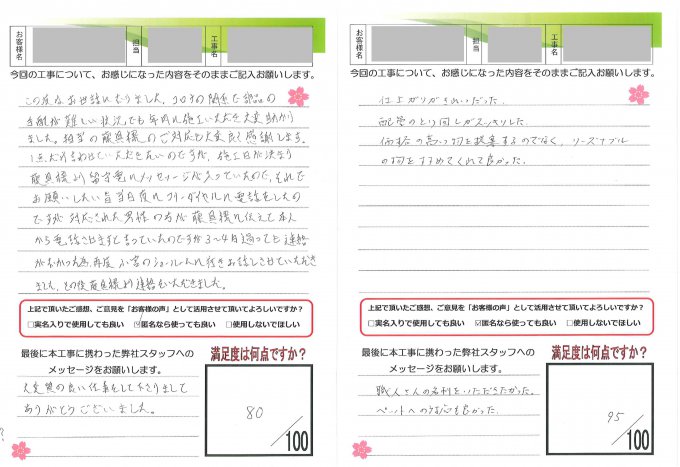 お客様名
担当
工事名
今回の工事について、お感じになった内容をそのままご記入お願いします。
この度はお世話になりました。コロナの関係で部品の
手配が難しい状況でも年内に施工いただき大変助かり
ました。担当の 様のご対応も大変良く感謝します。
1点だけ言わせていただきたいのですが、施工日が決まり
様より留守電にメッセージが入っていたので、それで
お願いしたい旨当日夜にフリーダイヤルに電話をしたの
ですが対応された男性の方が 様に伝えて本人
から電話させますと言っていたのですが3〜4日過っても連絡
がなかった為、再度 お客のショールームに行きお話しさせていただき
ました。その後 様より連絡をいただきました。
上記で頂いたご感想、ご意見を「お客様の声」として活用させて頂いてよろしいですか？
□実名入りで使用しても良い ☑匿名なら使っても良い □使用しないでほしい
最後に本工事に携わった弊社スタッフへの
メッセージをお願いします。
大変質の良い仕事をして下さりまして
ありがとうございました。
満足度は何点ですか？
80
/100
お客様名
担当
工事名
今回の工事について、お感じになった内容をそのままご記入お願いします。
仕上がりがきれいだった。
配管のとり回しがスッキリした。
価格の高い物を提案するのでなく、リーズナブル
の物をすすめてくれて良かった。
上記で頂いたご感想、ご意見を「お客様の声」として活用させて頂いてよろしいですか？
□実名入りで使用しても良い ☑匿名なら使っても良い □使用しないでほしい
最後に本工事に携わった弊社スタッフへの
メッセージをお願いします。
職人さんの名刺をいただきたかった。
ペットへの対応も良かった。
満足度は何点ですか？
95
/100